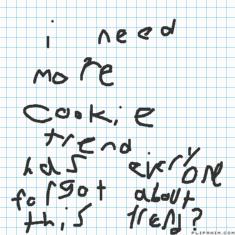 i need
more
cookie
trend
has everyone
forgot about
this trend?
FLIPANIM.COM